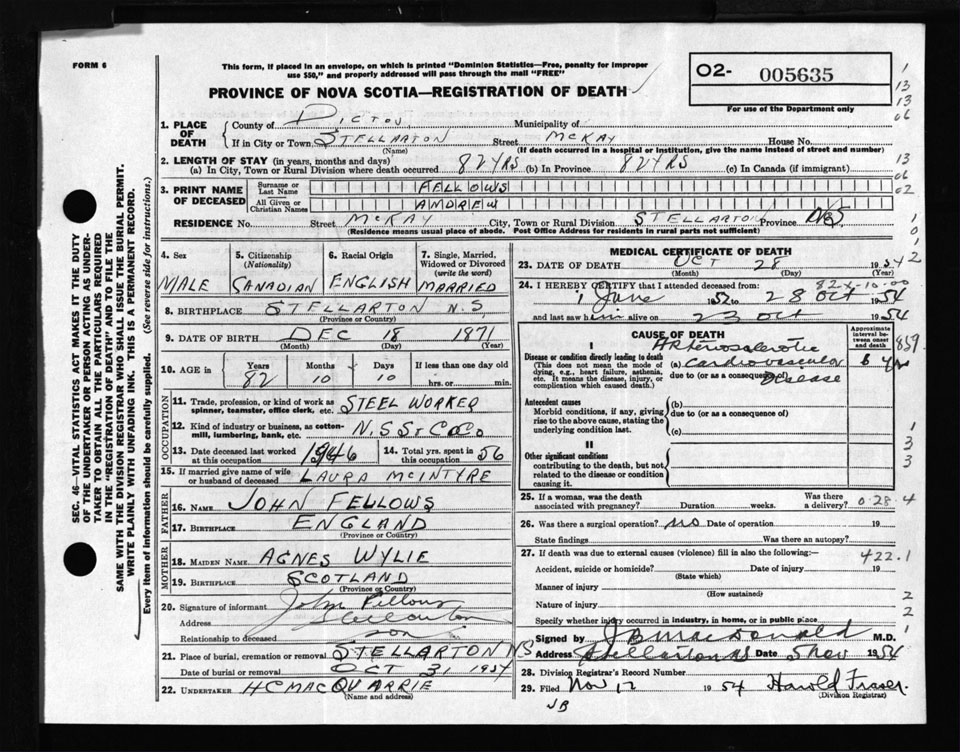 FORM 6
This form, if placed in an envelope, on which is printed "Dominion Statistics—Free, penalty for improper
use $50," and properly addressed will pass through the mail "FREE"
O2- 005635
For use of the Department only
PROVINCE OF NOVA SCOTIA—REGISTRATION OF DEATH
1. PLACE OF DEATH
County of PICTOU Municipality of
If in City or Town STELLARTON Street McKAY House No.
(Name) (If death occurred in a hospital or institution, give the name instead of street and number)
2. LENGTH OF STAY (in years, months and days)
(a) In City, Town or Rural Division where death occurred 82 YRS (b) In Province 82 YRS (c) In Canada (if immigrant)
3. PRINT NAME OF DECEASED
Surname or Last Name FELLOWS
All Given or Christian Names ANDREW
RESIDENCE No. Street McKAY City, Town or Rural Division STELLARTON Province N.S.
(Residence means usual place of abode. Post Office Address for residents in rural parts not sufficient)
4. Sex MALE
5. Citizenship (Nationality) CANADIAN
6. Racial Origin ENGLISH
7. Single, Married, Widowed or Divorced (write the word) MARRIED
8. BIRTHPLACE STELLARTON N.S.
(Province or Country)
9. DATE OF BIRTH DEC 18 1871
(Month) (Day) (Year)
10. AGE in Years 82 Months 10 Days 10 If less than one day
hrs. or min.
OCCUPATION
11. Trade, profession, or kind of work as
spinner, teamster, office clerk, etc. STEEL WORKER
12. Kind of industry or business, as cotton-
mill, lumbering, bank, etc. N.S St C Co
13. Date deceased last worked at this occupation 1946
14. Total yrs. spent in this occupation 56
15. If married give name of wife
or husband of deceased LAURA McINTYRE
FATHER
16. NAME JOHN FELLOWS
17. BIRTHPLACE ENGLAND
(Province or Country)
MOTHER
18. MAIDEN NAME AGNES WYLIE
19. BIRTHPLACE SCOTLAND
(Province or Country)
20. Signature of informant John Fellows
Address Stellarton
Relationship to deceased son
21. Place of burial, cremation or removal STELLARTON NS
Date of burial or removal OCT 31 1954
22. UNDERTAKER H C MACQUARRIE
(Name and address)
MEDICAL CERTIFICATE OF DEATH
23. DATE OF DEATH OCT 28 1954
(Month) (Day) (Year)
24. I HEREBY CERTIFY that I attended deceased from: 82 x-10-00
1 June 1952 to 28 Oct 1954
and last saw him alive on 23 Oct 1954
CAUSE OF DEATH
Approximate interval between onset and death
I
Disease or condition directly leading to death
(This does not mean the mode of
dying, e.g., heart failure, asthenia,
etc. It means the disease, injury, or
complication which caused death.)
Arteriosclerotic
(a) cardiovascular 6 yrs
due to (or as a consequence of)
Disease
Antecedent causes
Morbid conditions, if any, giving
rise to the above cause, stating the
underlying condition last.
(b)
due to (or as a consequence of)
(c)
II
Other significant conditions
contributing to the death, but not
related to the disease or condition
causing it.
25. If a woman, was the death
associated with pregnancy? Duration weeks. Was there a delivery?
0-28-4
26. Was there a surgical operation? no Date of operation 19
State findings Was there an autopsy?
27. If death was due to external causes (violence) fill in also the following:—
422.1
Accident, suicide or homicide? Date of injury 19
(State which)
Manner of injury
(How sustained)
Nature of injury
Specify whether injury occurred in industry, in home, or in public place
Signed by J B MacDonald M.D.
Address Stellarton NS Date 5 Nov 1954
28. Division Registrar's Record Number
29. Filed Nov 12 1954 Harold Fraser
(Division Registrar)
JB
SEC. 46—VITAL STATISTICS ACT MAKES IT THE DUTY
OF THE UNDERTAKER OR PERSON ACTING AS UNDER-
TAKER TO OBTAIN ALL THE PARTICULARS REQUIRED
IN THE "REGISTRATION OF DEATH" AND TO FILE THE
SAME WITH THE DIVISION REGISTRAR WHO SHALL ISSUE THE BURIAL PERMIT.
WRITE PLAINLY WITH UNFADING INK. THIS IS A PERMANENT RECORD.
Every item of information should be carefully supplied. (See reverse side for instructions.)
1
13
13
06
13
06
02
1
0
1
2
859
1
3
3
2
2
1